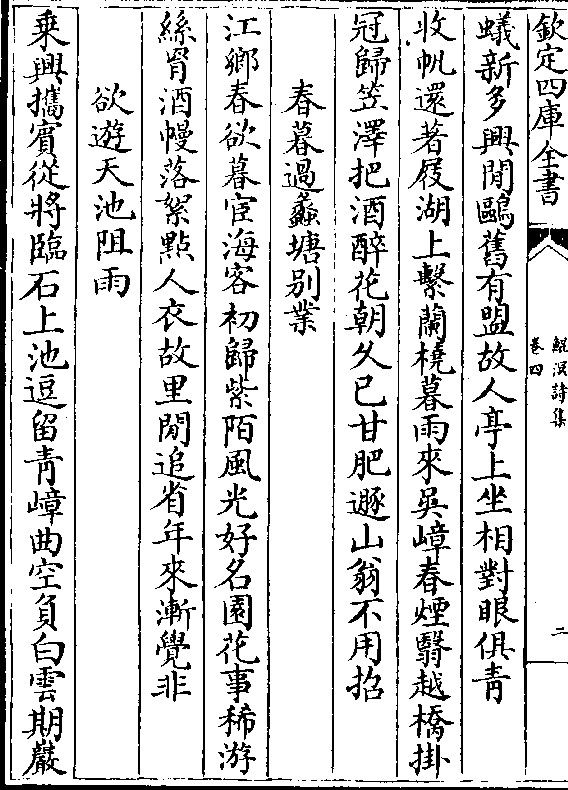 欽定四庫全書
鯤溟詩集
卷四
二
蟻新多興閒鷗舊有盟故人亭上坐相對眼俱青
收帆還著屐湖上繫蘭橈暮雨來吳嶂春煙翳越橋掛
冠歸笠澤把酒醉花朝久已甘肥遯山翁不用招
春暮過蠡塘別業
江鄉春欲暮宦海客初歸紫陌風光好名園花事稀游
絲罥酒幔落絮點人衣故里閒追省年來漸覺非
欲遊天池阻雨
乘興攜賓從將臨石上池逗留青嶂曲空負白雲期巖